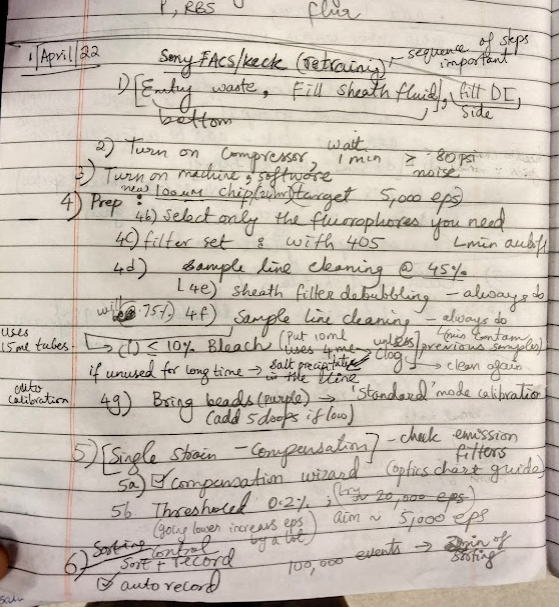 P, RBS flix
1|April|22 Sony FACS/keck (retraining) - sequence of steps important
1) [Emty waste, Fill sheath fluid], fill DI
bottom side
2) Turn on compressor, wait 1 min ≥ 80 psi
noise
3) Turn on machine, software
4) Prep : new 100um chip (2um) (target 5,000 eps)
4b) Select only the fluorophores you need
4c) filter set & with 405 Lmin
4d) sample line cleaning @ 45%
L 4e) sheath filter debubbling - always do
75%) 4f) Sample line cleaning - always do
uses 15ml tubes. → (i) ≤ 10% Bleach (Put 10ml uses 4ml unless clog] (min contam previous samples)
if unused for long time → salt precipitate in the line → clean again
auto calibration
4g) Bring beads (purple) → 'Standard' mode calibration
(add 5 drops if low)
5) [Single Strain - Compensation] - check emission filters
5a) ☑ Compensation wizard (optics chart guide)
5b Threshold 0.2% ; (try ~ 20,000 eps)
(going lower increases eps by a lot) aim ~ 5,000 eps
6) Sorting control
Sort + record 100,000 events → min of sorting
☑ auto record